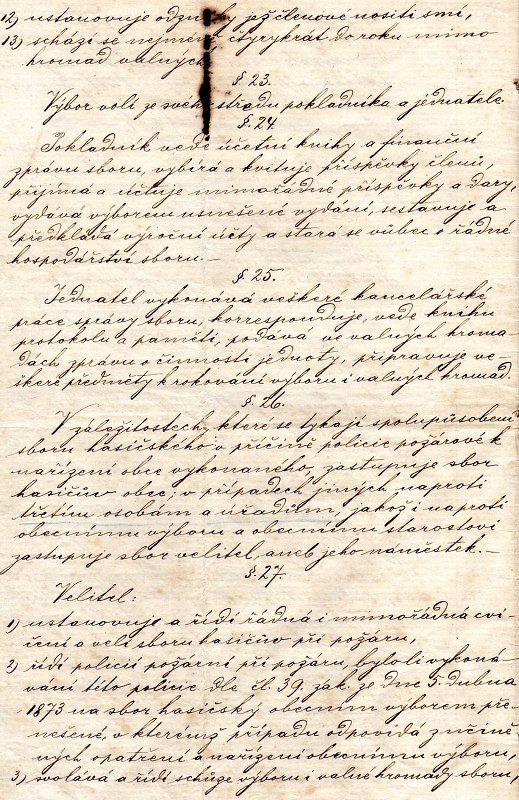 12) ustanovuje odznaky jež členové nositi smí,
13) schází se nejméně čtyrykrát do roku mimo
hromad valných.
§. 23.
Výbor volí ze svého středu pokladníka a jednatele.
§. 24.
Pokladník vede účetní knihy a finanční
zprávu sboru, vybírá a kvituje příspěvky členů,
přijímá a účtuje mimořádné příspěvky a dary,
vydává výborem usnešené vydání, sestavuje a
předkládá výroční účty a stará se vůbec o řádné
hospodářství sboru. —
§. 25.
Jednatel vykonává veškeré kancelářské
práce správy sboru, korresponduje, vede knihu
protokolu a pamětí, podává ve valných hroma-
dách zprávu o činnosti jednoty, připravuje ve-
škeré předměty k rokování výboru i valných hromad.
§. 26.
V záležitostech, které se týkají spolupůsobení
sboru hasičského v příčině policie požárové k
nařízení obce vykonaného, zastupuje sbor
hasičův obec; v případech jiných naproti
třetím osobám a úřadům, jakož i naproti
obecnímu výboru a obecnímu starostovi
zastupuje sbor velitel, aneb jeho náměstek. —
§. 27.
Velitel:
1) ustanovuje a řídí řádná i mimořádná cvi-
čení a velí sboru hasičův při požáru,
2) řídí policii požární při požáru, byloli vykoná-
vání této policie dle čl. 39. zák. ze dne 5. dubna
1873 na sbor hasičský obecním výborem pře-
nešené, v kterémž případu odpovídá z učině-
ných opatření a nařízení obecnímu výboru,
3) svolává a řídí schůze výboru i valné hromady sboru,